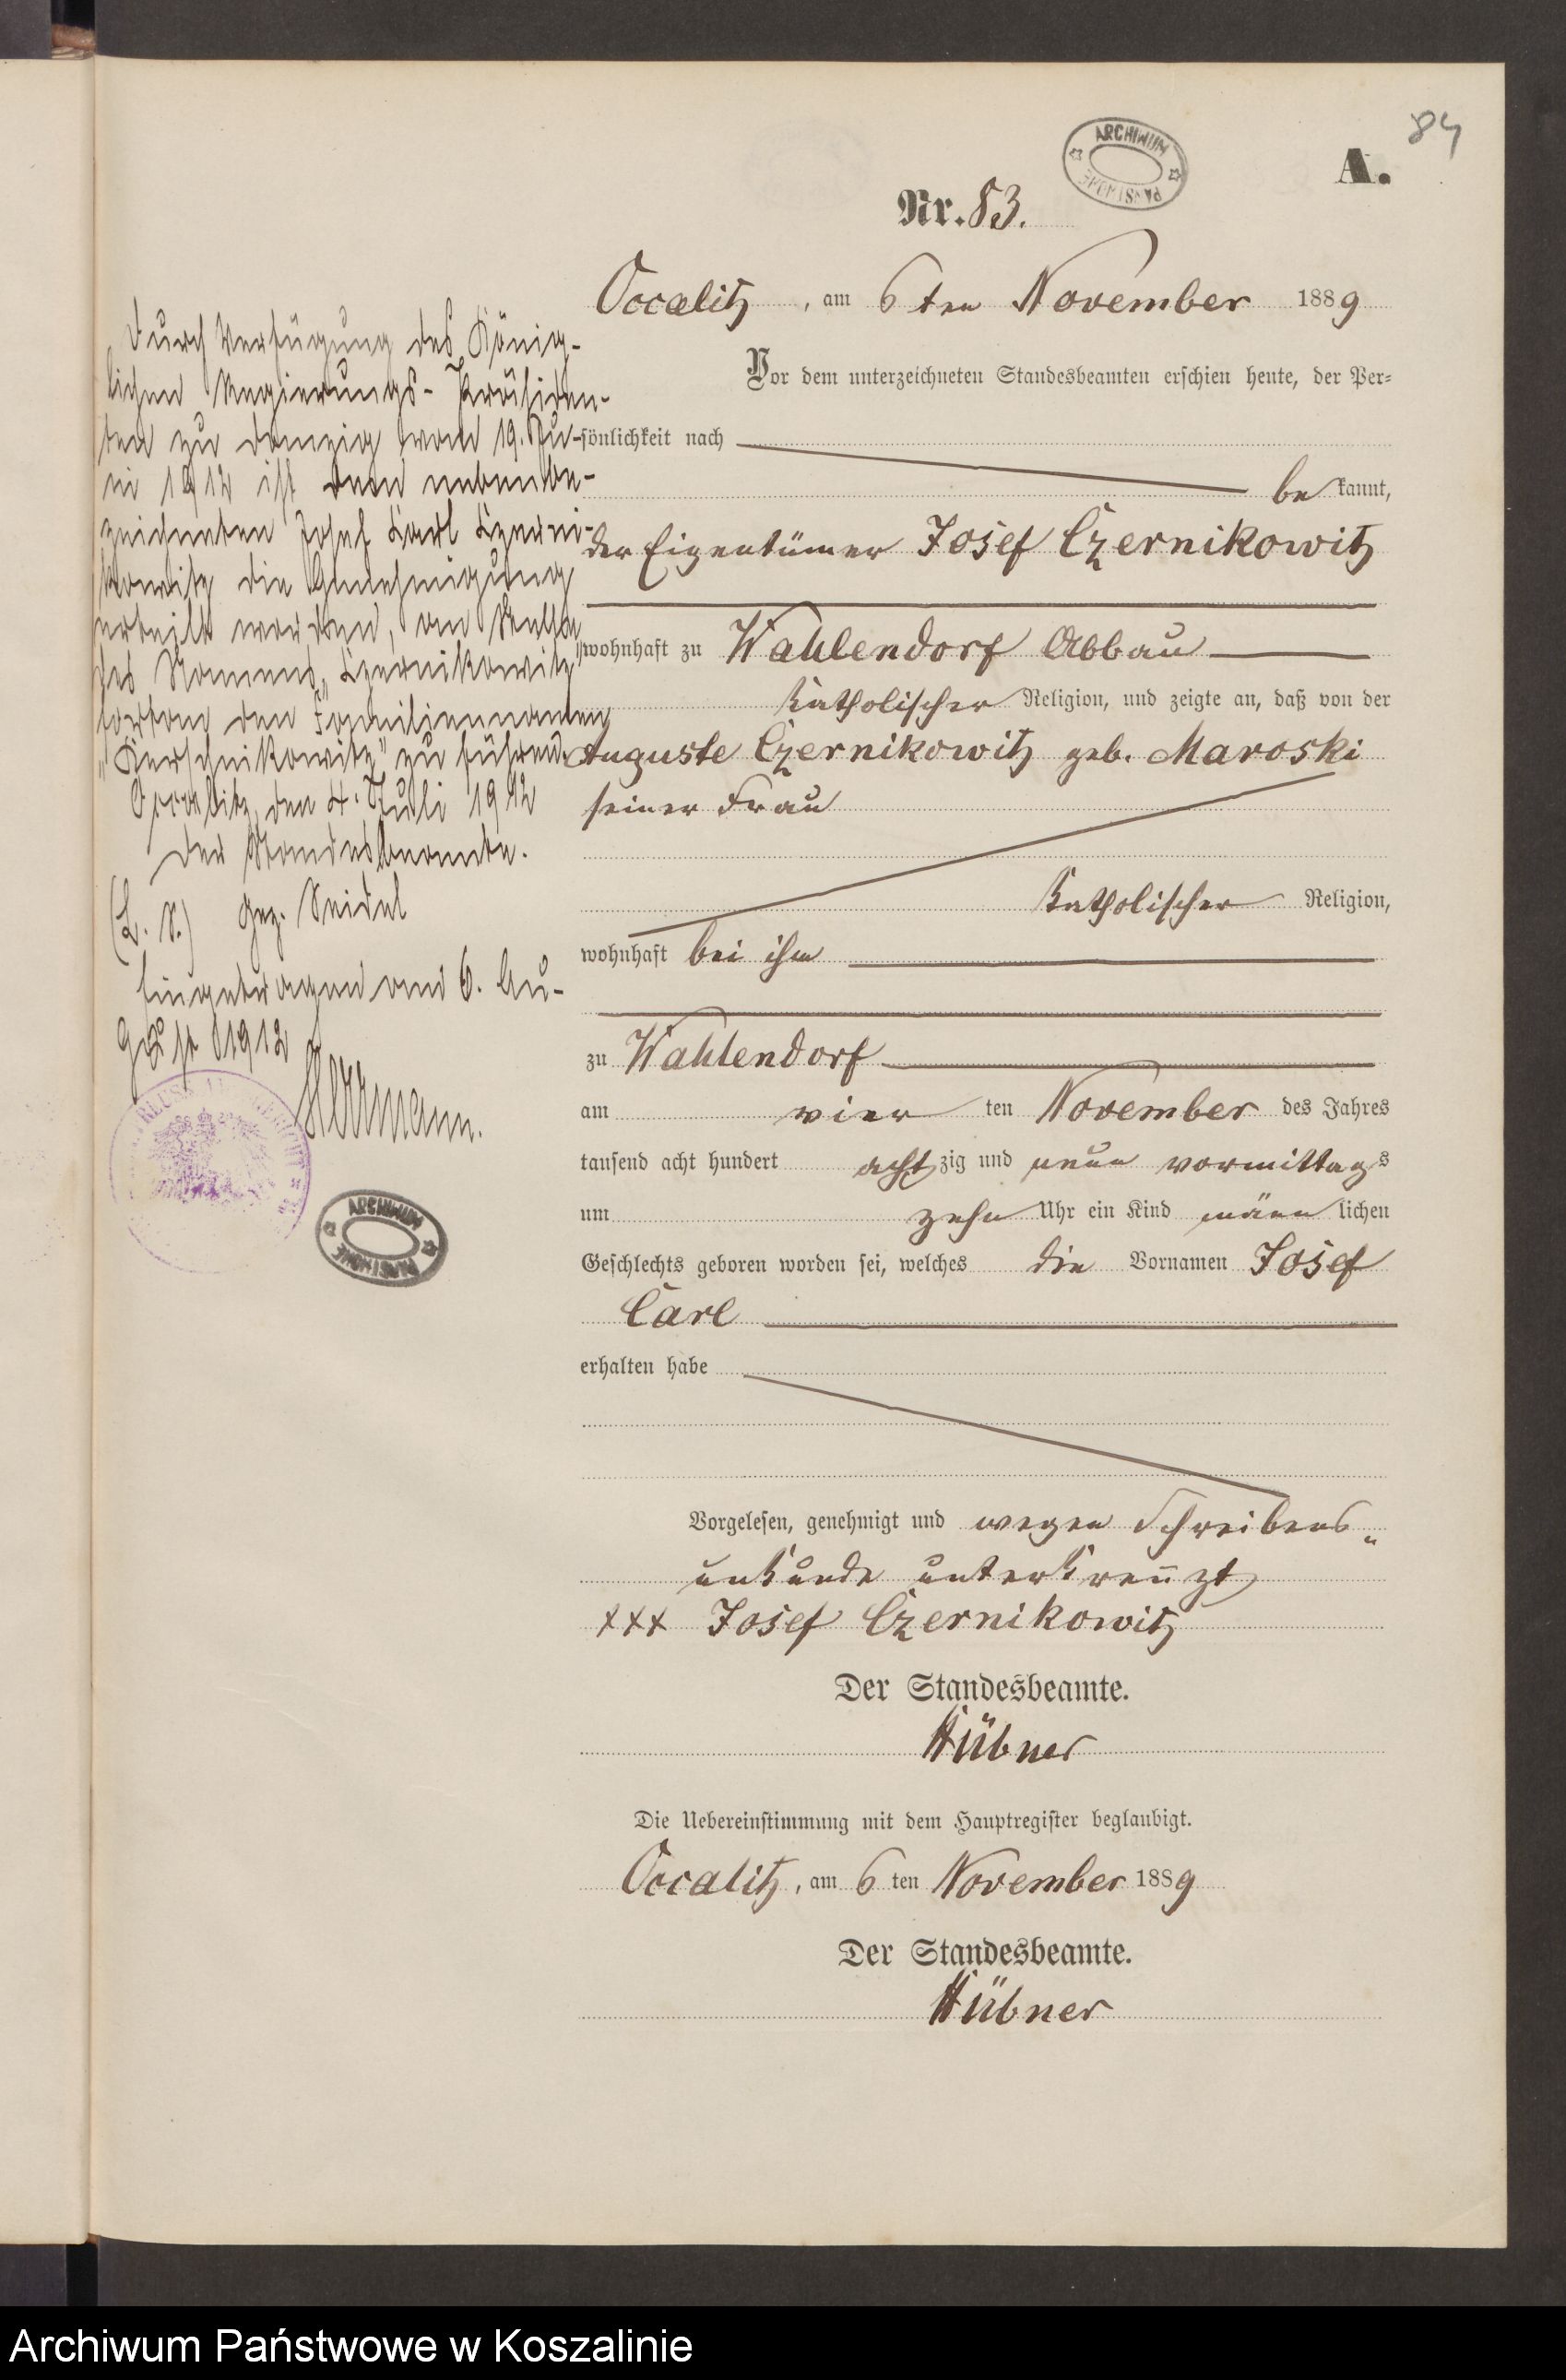 84
A.
ARCHIWUM PAŃSTWOWE
Nr. 83.
Occalitz, am 6ten November 1889
Vor dem unterzeichneten Standesbeamten erschien heute, der Per-
sönlichkeit nach
bekannt,
der Eigentümer Josef Czernikowitz
wohnhaft zu Wahlendorf Abbau
katholischer Religion, und zeigte an, daß von der
Auguste Czernikowitz geb. Maroski
seiner Frau
katholischer Religion,
wohnhaft bei ihm
zu Wahlendorf
am vier ten November des Jahres
tausend acht hundert achtzig und neun vormittags
um zehn Uhr ein Kind männlichen
Geschlechts geboren worden sei, welches die Vornamen Josef
Carl
erhalten habe
Vorgelesen, genehmigt und wegen Schreibens-
unkunde unterkreuzt
+++ Josef Czernikowitz
Der Standesbeamte.
Hübner
Die Uebereinstimmung mit dem Hauptregister beglaubigt.
Occalitz, am 6 ten November 1889
Der Standesbeamte.
Hübner
Durch Verfügung des König-
lichen Regierungs-Präsiden-
ten zu Danzig vom 19. Ju-
ni 1912 ist dem nebenbe-
zeichneten Josef Carl Czerni-
kowitz die Genehmigung
erteilt worden, an Stelle
des Namens „Czernikowitz"
fortan den Familiennamen
„Kerschnikowitz" zu führen.
Occalitz, den 4. Juli 1912
Der Standesbeamte.
(L. S.) gez. Seidel
Eingetragen am 6. Au-
gust 1912
ARCHIWUM PAŃSTWOWE
Archiwum Państwowe w Koszalinie